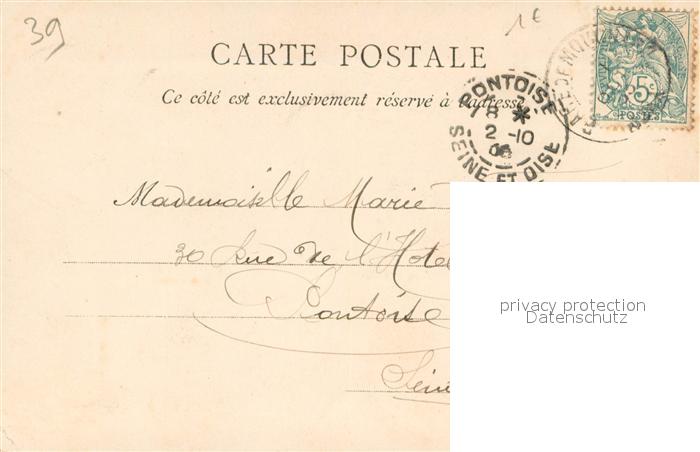 39
1€
CARTE POSTALE
Ce côté est exclusivement réservé à l'adresse
PONTOISE
18 *
2 -10
SEINE ET OISE
5c
POSTES
Mademoiselle Marie
30 Rue de l'Hotel
Pontoise
Seine
privacy protection
Datenschutz